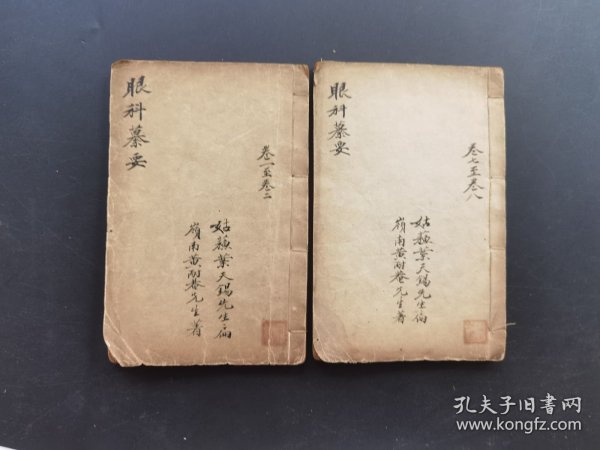 眼科纂要
卷一至卷二
姑蘇葉天錫先生編
嶺南黃耐菴先生著
眼科纂要
卷七至卷八
姑蘇葉天錫先生編
嶺南黃耐菴先生著
孔夫子旧書网
www.kongfz.com